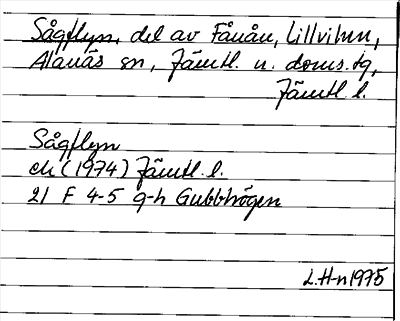 Sågflyn, del av Fånån, Lillviken,
Alanäs sn, Jämtl. n. doms.tg,
Jämtl. l.
Sågflyn
ek (1974) Jämtl. l.
21 F 4-5 g-h Gubbhögen
L.H-n 1975